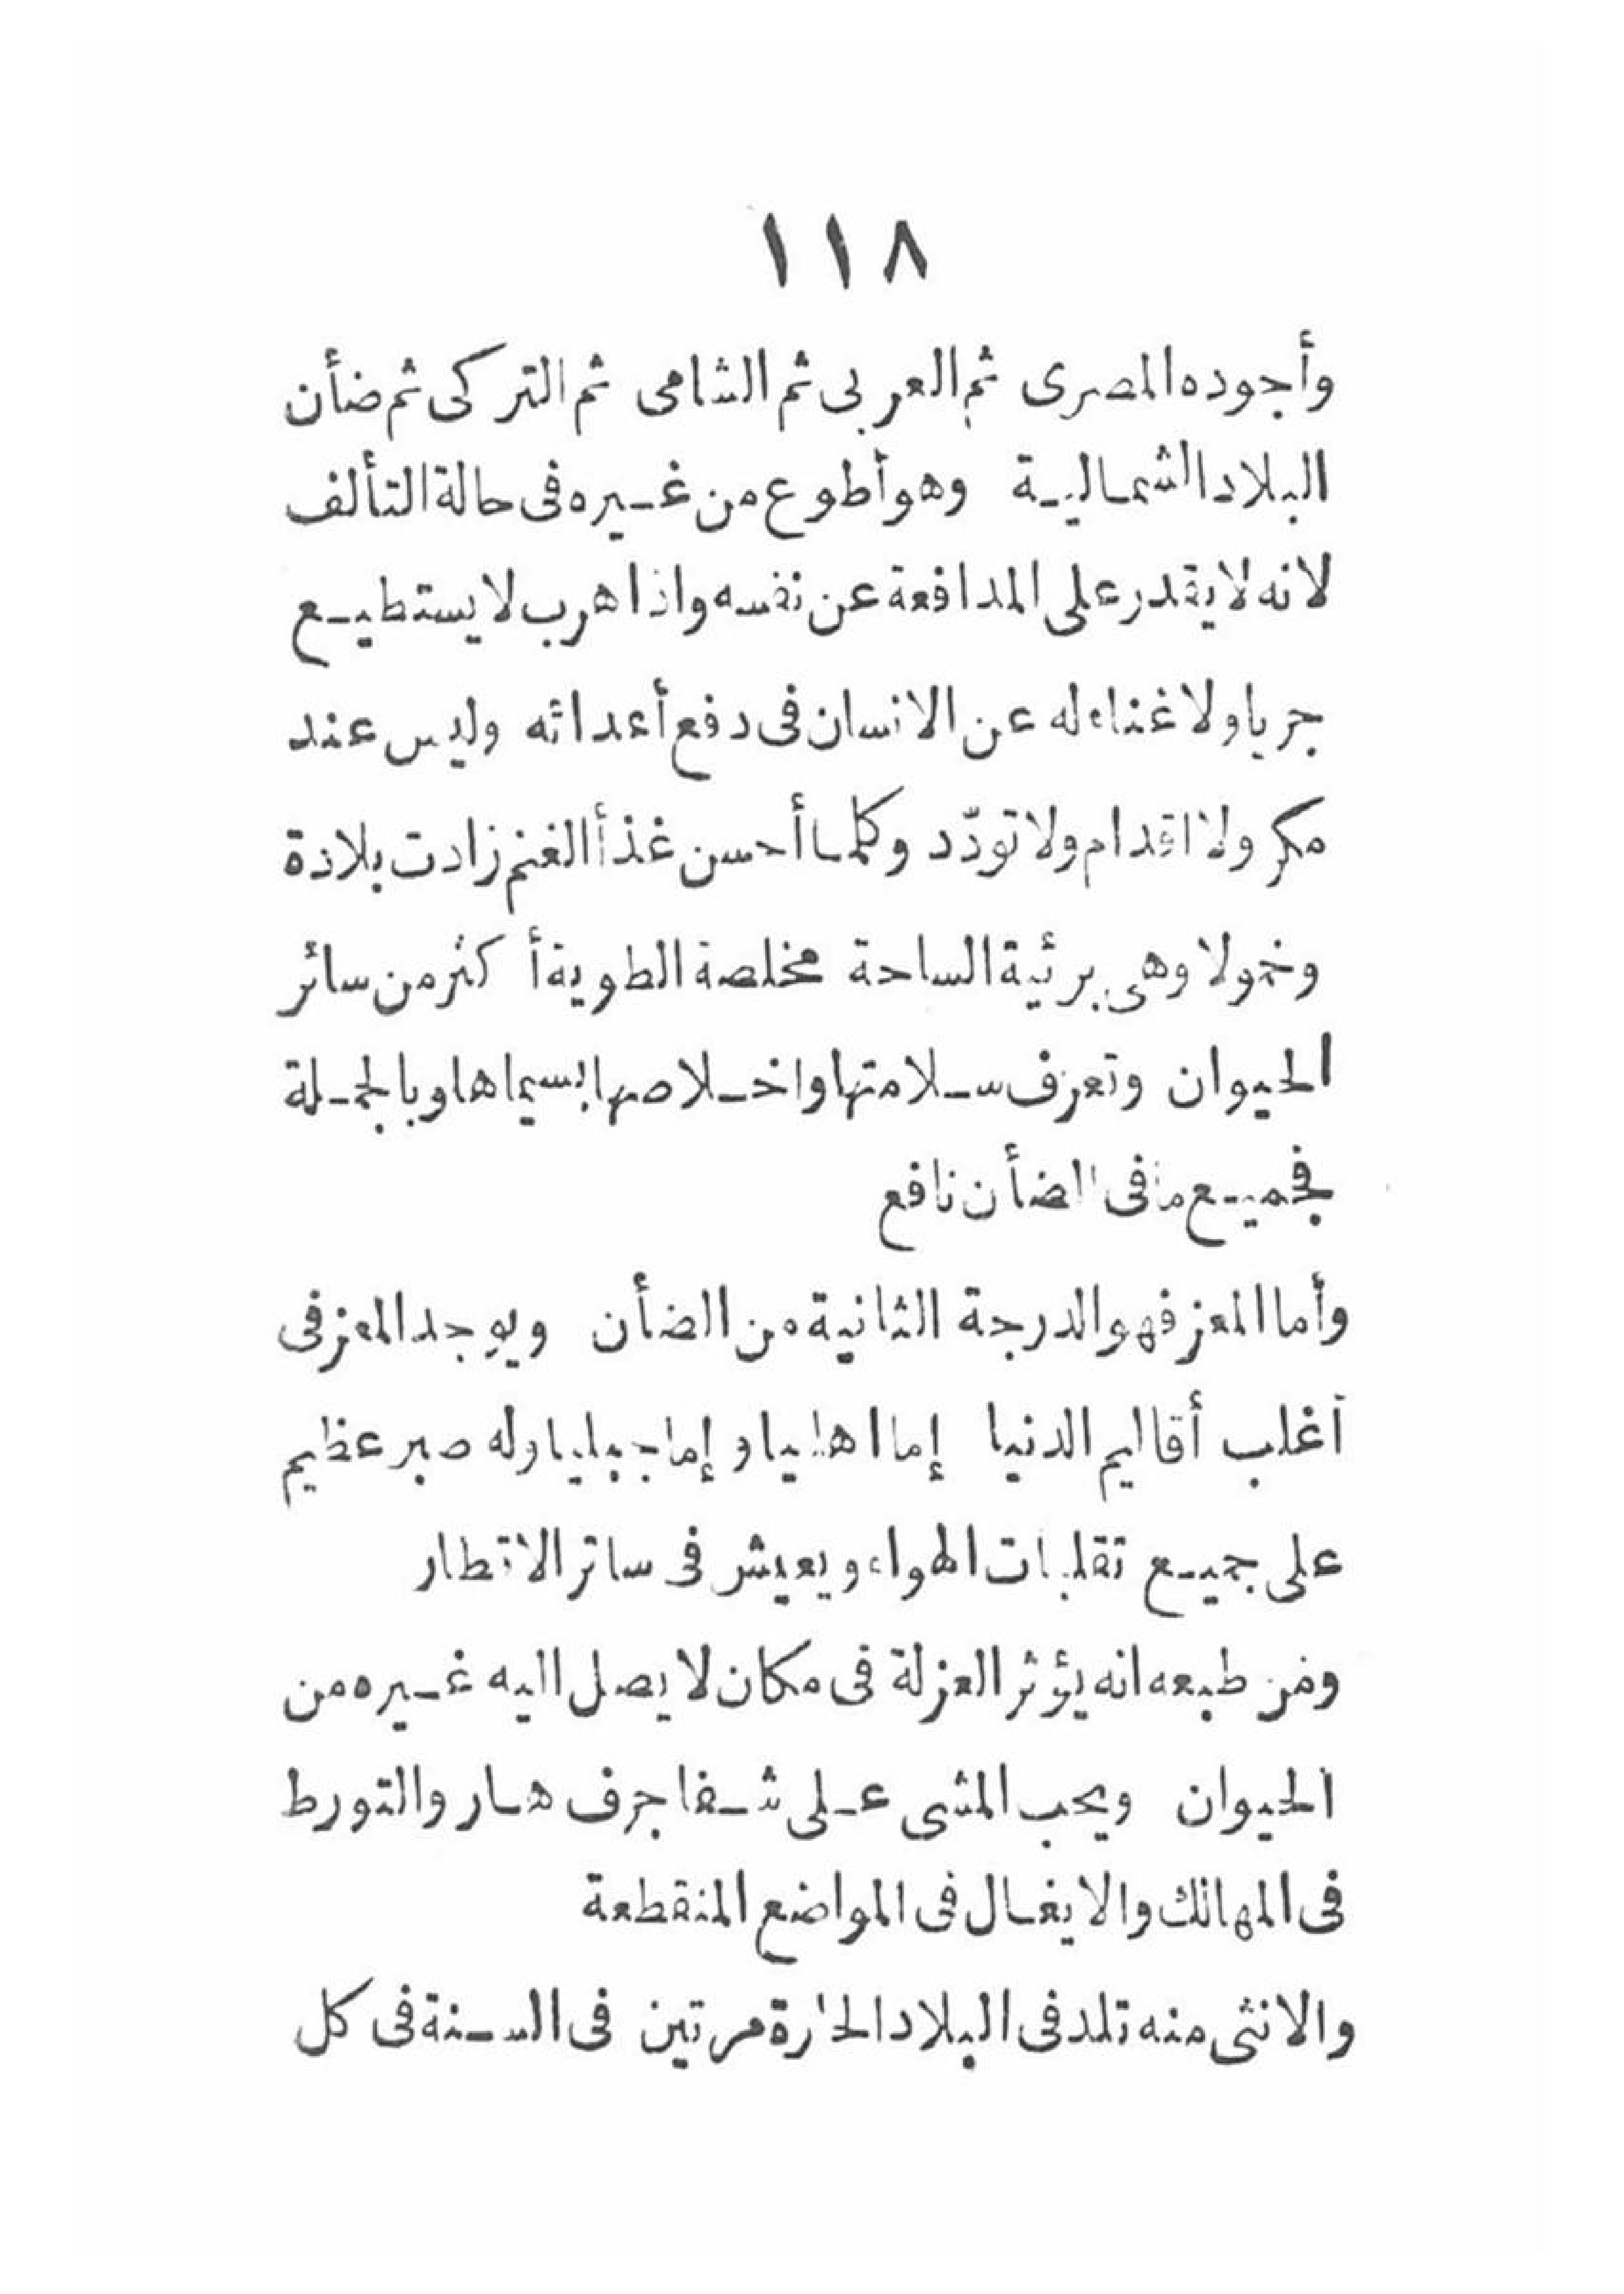 ١١٨
وأجوده المصرى ثم العربى ثم الشامى ثم التركى ثم ضأن
البلاد الشمالية وهو أطوع من غيره فى حالة التألف
لانه لا يقدر على المدافعة عن نفسه واذا هرب لا يستطيع
جريا ولا غناء له عن الانسان فى دفع أعدائه وليس عند
مكر ولا اقدام ولا تودّد وكلما أحسن غذأ الغنم زادت بلادة
وخمولا وهى برئية الساحة مخلصة الطوية أكثر من سائر
الحيوان وتعرف سلامتها واخلاصها بسيماها وبالجملة
فجميع ما فى الضأن نافع
وأما المعز فهو الدرجة الثانية من الضأن ويوجد المعز فى
أغلب أقاليم الدنيا إما اهليا وإما جبليا وله صبر عظيم
على جميع تقلبات الهواء ويعيش فى سائر الاقطار
ومن طبعه انه يؤثر العزلة فى مكان لا يصل اليه غيره من
الحيوان ويحب المشى على شفا جرف هار والتورط
فى المهالك والايغال فى المواضع المنقطعة
والانثى منه تلد فى البلاد الحارة مرتين فى السنة فى كل